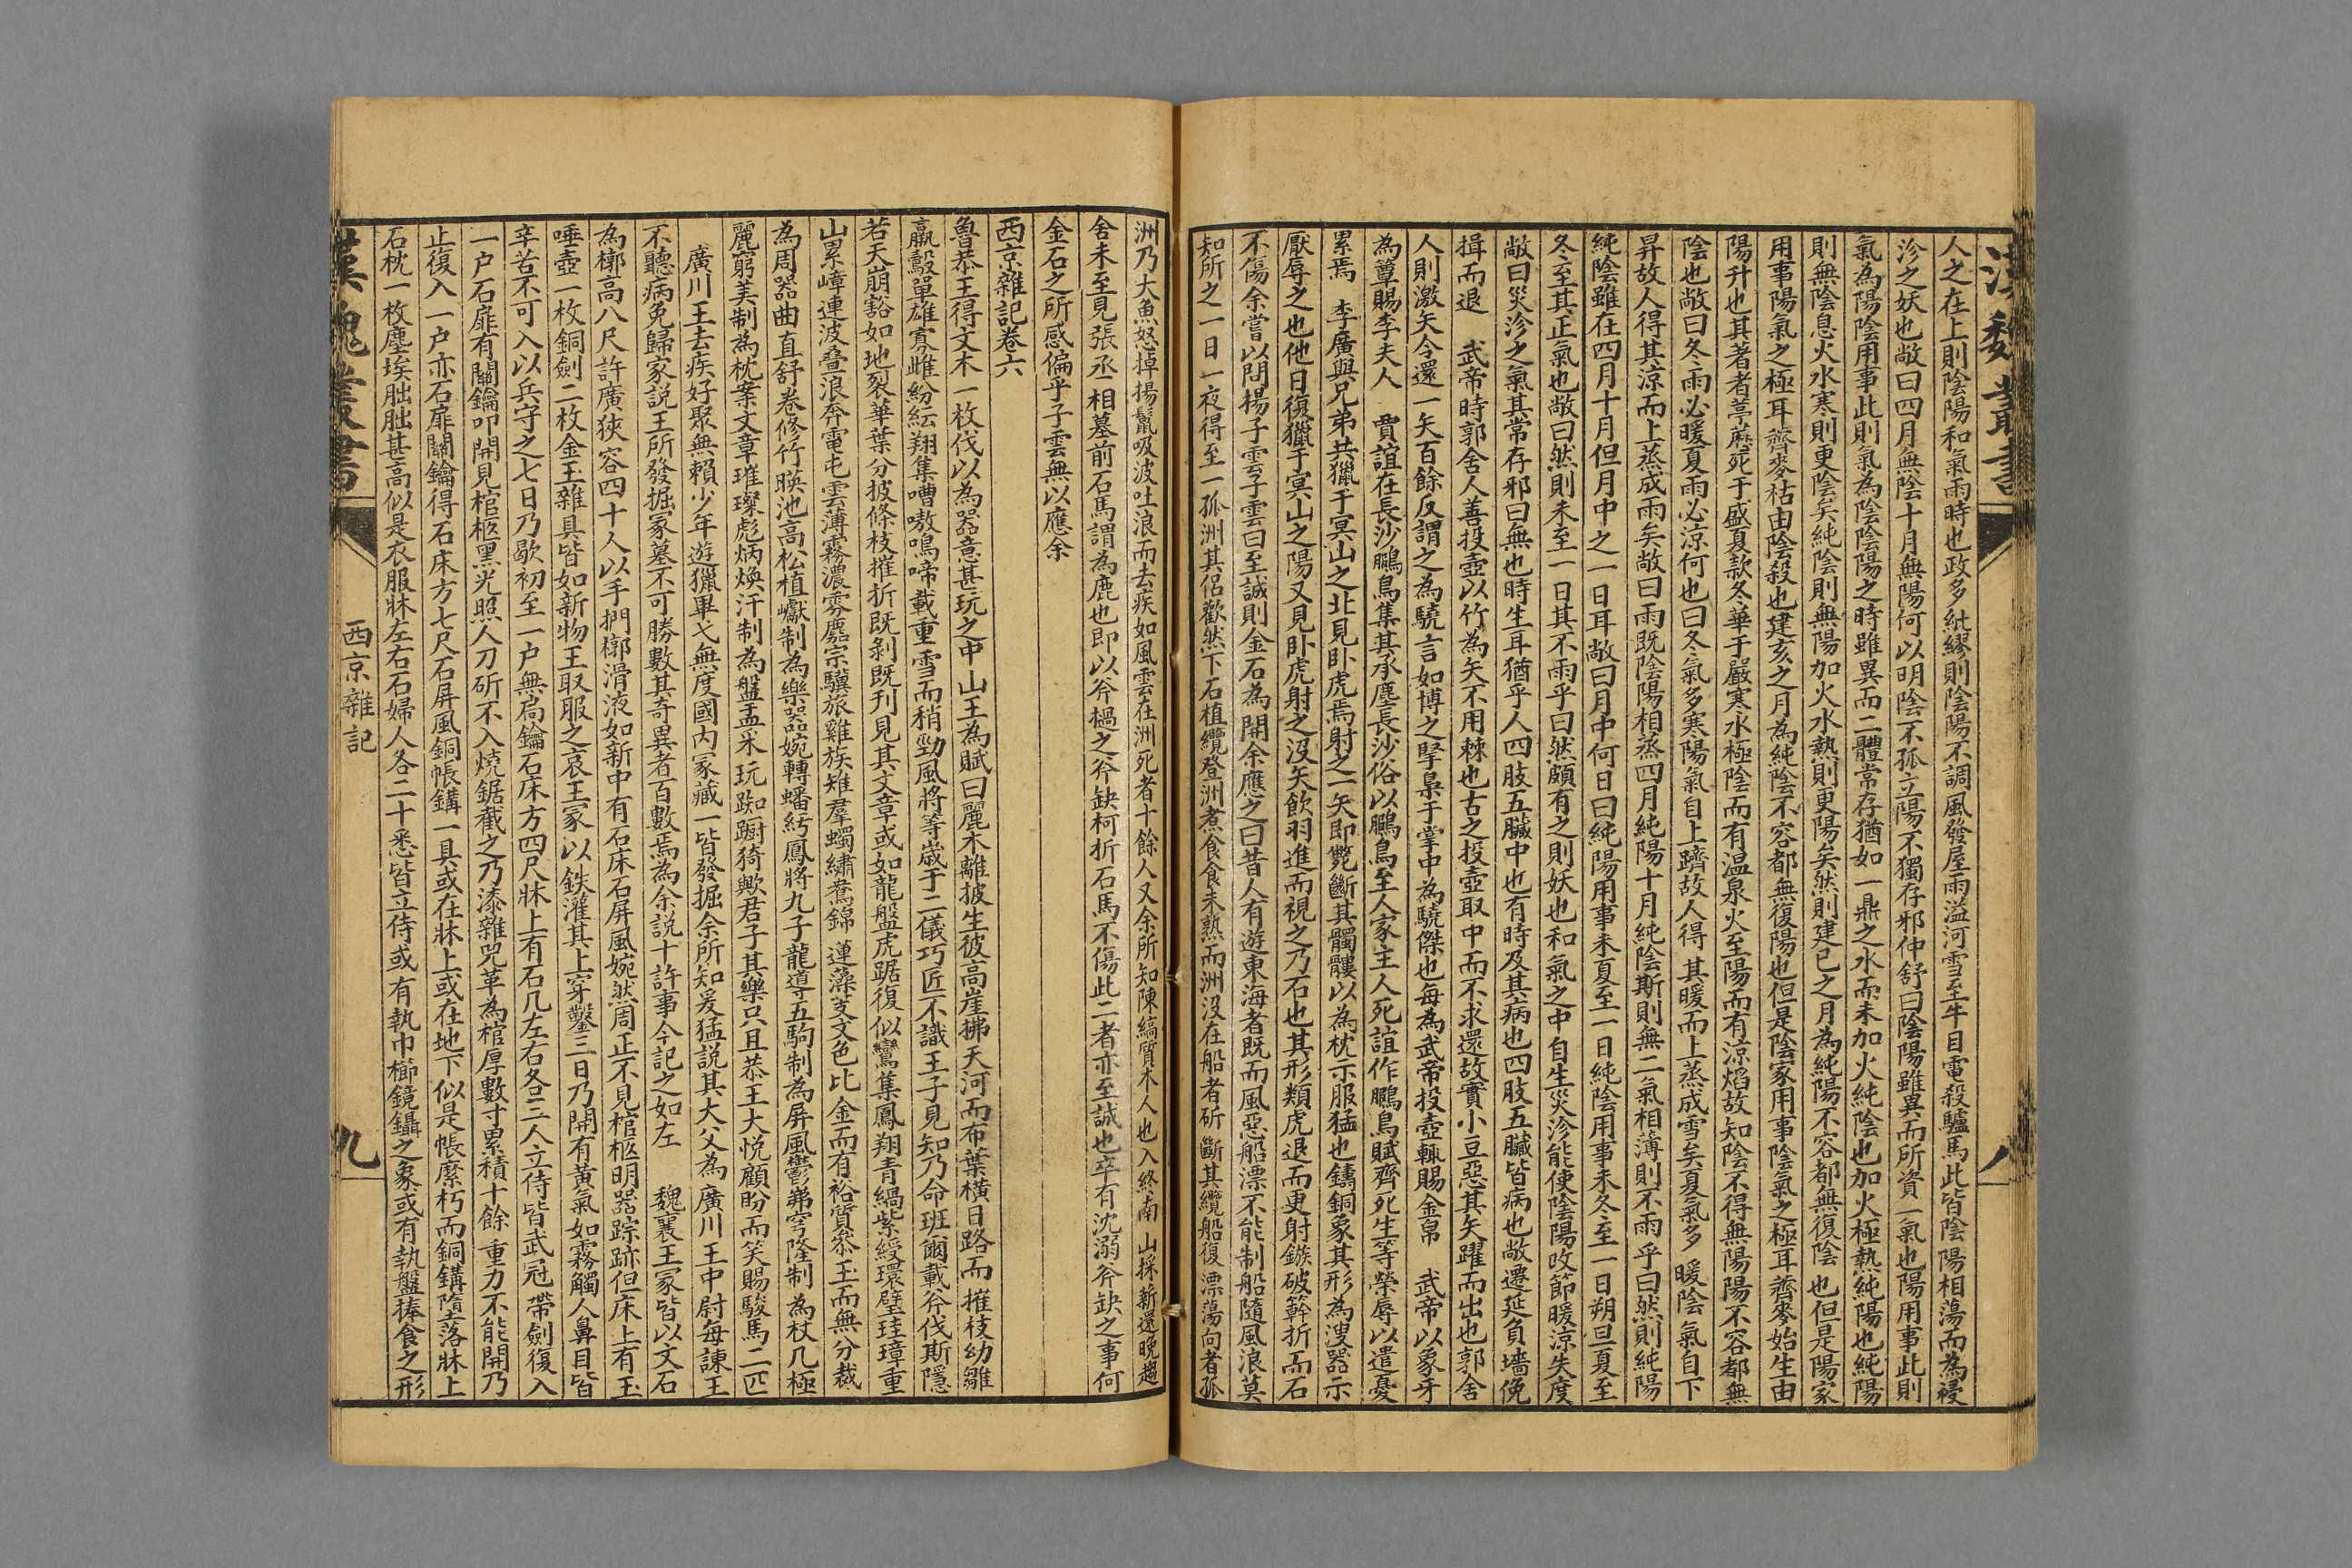 漢魏叢書
八
人之在上則陰陽和氣雨時也政多紕繆則陰陽不調風發屋雨溢河雪至牛目電殺驢馬此皆陰陽相蕩而為祲
沴之妖也敞曰四月無陰十月無陽何以明陰不孤立陽不獨存邪仲舒曰陰陽雖異而所資一氣也陽用事此則
氣為陽陰用事此則氣為陰陰陽之時雖異而二體常存猶如一鼎之水而未加火純陰也加火極熱純陽也純陽
則無陰息火水寒則更陰矣純陰則無陽加火水熱則更陽矣然則建巳之月為純陽不容都無復陰也但是陽家
用事陽氣之極耳薺麥枯由陰殺也建亥之月為純陰不容都無復陽也但是陰家用事陰氣之極耳薺麥始生由
陽升也其著者葶藶死于盛夏款冬華于嚴寒水極陰而有溫泉火至陽而有涼焰故知陰不得無陽陽不容都無
陰也敞曰冬雨必暖夏雨必涼何也曰冬氣多寒陽氣自上躋故人得其暖而上蒸成雪矣夏氣多暖陰氣自下
昇故人得其涼而上蒸成雨矣敞曰雨既陰陽相蒸四月純陽十月純陰斯則無二氣相薄則不雨乎曰然則純陽
純陰雖在四月十月但月中之一日耳敞曰月中何日曰純陽用事未夏至一日純陰用事未冬至一日朔旦夏至
冬至其正氣也敞曰然則未至一日其不雨乎曰然頗有之則妖也和氣之中自生災沴能使陰陽改節暖涼失度
敞曰災沴之氣其常存邪曰無也時生耳猶乎人四肢五臟中也有時及其病也四肢五臟皆病也敞遷延負墻俛
揖而退　武帝時郭舍人善投壺以竹為矢不用棘也古之投壺取中而不求還故實小豆惡其矢躍而出也郭舍
人則激矢令還一矢百餘反謂之為驍言如博之掔梟于掌中為驍傑也每為武帝投壺輒賜金帛　武帝以象牙
為簟賜李夫人　賈誼在長沙鵩鳥集其承塵長沙俗以鵩鳥至人家主人死誼作鵩鳥賦齊死生等榮辱以遣憂
累焉　李廣與兄弟共獵于冥山之北見卧虎焉射之一矢即斃斷其髑髏以為枕示服猛也鑄銅象其形為溲器示
厭辱之也他日復獵于冥山之陽又見卧虎射之沒矢飲羽進而視之乃石也其形類虎退而更射鏃破簳折而石
不傷余嘗以問楊子雲子雲曰至誠則金石為開余應之曰昔人有遊東海者既而風惡船漂不能制船隨風浪莫
知所之一日一夜得至一孤洲其侶歡然下石植纜登洲煮食食未熟而洲沒在船者斫斷其纜船復漂蕩向者孤
洲乃大魚怒掉揚鬣吸波吐浪而去疾如風雲在洲死者十餘人又余所知陳縞質木人也入終南山採薪還晚趨
舍未至見張丞相墓前石馬謂為鹿也即以斧撾之斧缺柯折石馬不傷此二者亦至誠也卒有沈溺斧缺之事何
金石之所感偏乎子雲無以應余
西京雜記卷六
魯恭王得文木一枚伐以為器意甚玩之中山王為賦曰麗木離披生彼高崖拂天河而布葉橫日路而摧枝幼雛
羸鷇單雄寡雌紛紜翔集嘈嗷鳴啼載重雪而稍勁風將等歲于二儀巧匠不識王子見知乃命班爾載斧伐斯隱
若天崩豁如地裂華葉分披條枝摧折既剝既刊見其文章或如龍盤虎踞復似鸞集鳳翔青緺紫綬環璧珪璋重
山累嶂連波疊浪奔電屯雲薄霧濃雰麚宗驥旅雞族雉羣蠋繡鴦錦蓮藻芰文色比金而有裕質參玉而無分裁
為周器曲直舒卷修竹暎池高松植巘制為樂器婉轉蟠紆鳳將九子龍導五駒制為屏風鬱岪穹隆制為杖几極
麗窮美制為枕案文章璀璨彪炳煥汗制為盤盂采玩踟躕猗歟君子其樂只且恭王大悅顧盼而笑賜駿馬二匹
　廣川王去疾好聚無賴少年遊獵畢弋無度國內冢藏一皆發掘余所知爰猛説其大父為廣川王中尉每諫王
不聽病免歸家説王所發掘冢墓不可勝數其奇異者百數焉為余説十許事今記之如左　魏襄王冢皆以文石
為槨高八尺許廣狹容四十人以手捫槨滑液如新中有石床石屏風婉然周正不見棺柩明器踪跡但床上有玉
唾壺一枚銅劍二枚金玉雜具皆如新物王取服之哀王冢以鉄灌其上穿鑿三日乃開有黃氣如霧觸人鼻目皆
辛苦不可入以兵守之七日乃歇初至一户無扃鑰石床方四尺牀上有石几左右各三人立侍皆武冠帶劍復入
一户石扉有關鑰叩開見棺柩黑光照人刀斫不入燒鋸截之乃漆雜兕革為棺厚數寸累積十餘重力不能開乃
止復入一户亦石扉關鑰得石床方七尺石屏風銅帳鏻一具或在牀上或在地下似是帳縻朽而銅鏻墮落牀上
石枕一枚塵埃朏朏甚高似是衣服牀左右石婦人各二十悉皆立侍或有執巾櫛鏡鑷之象或有執盤捧食之形
漢魏叢書
西京雜記
九